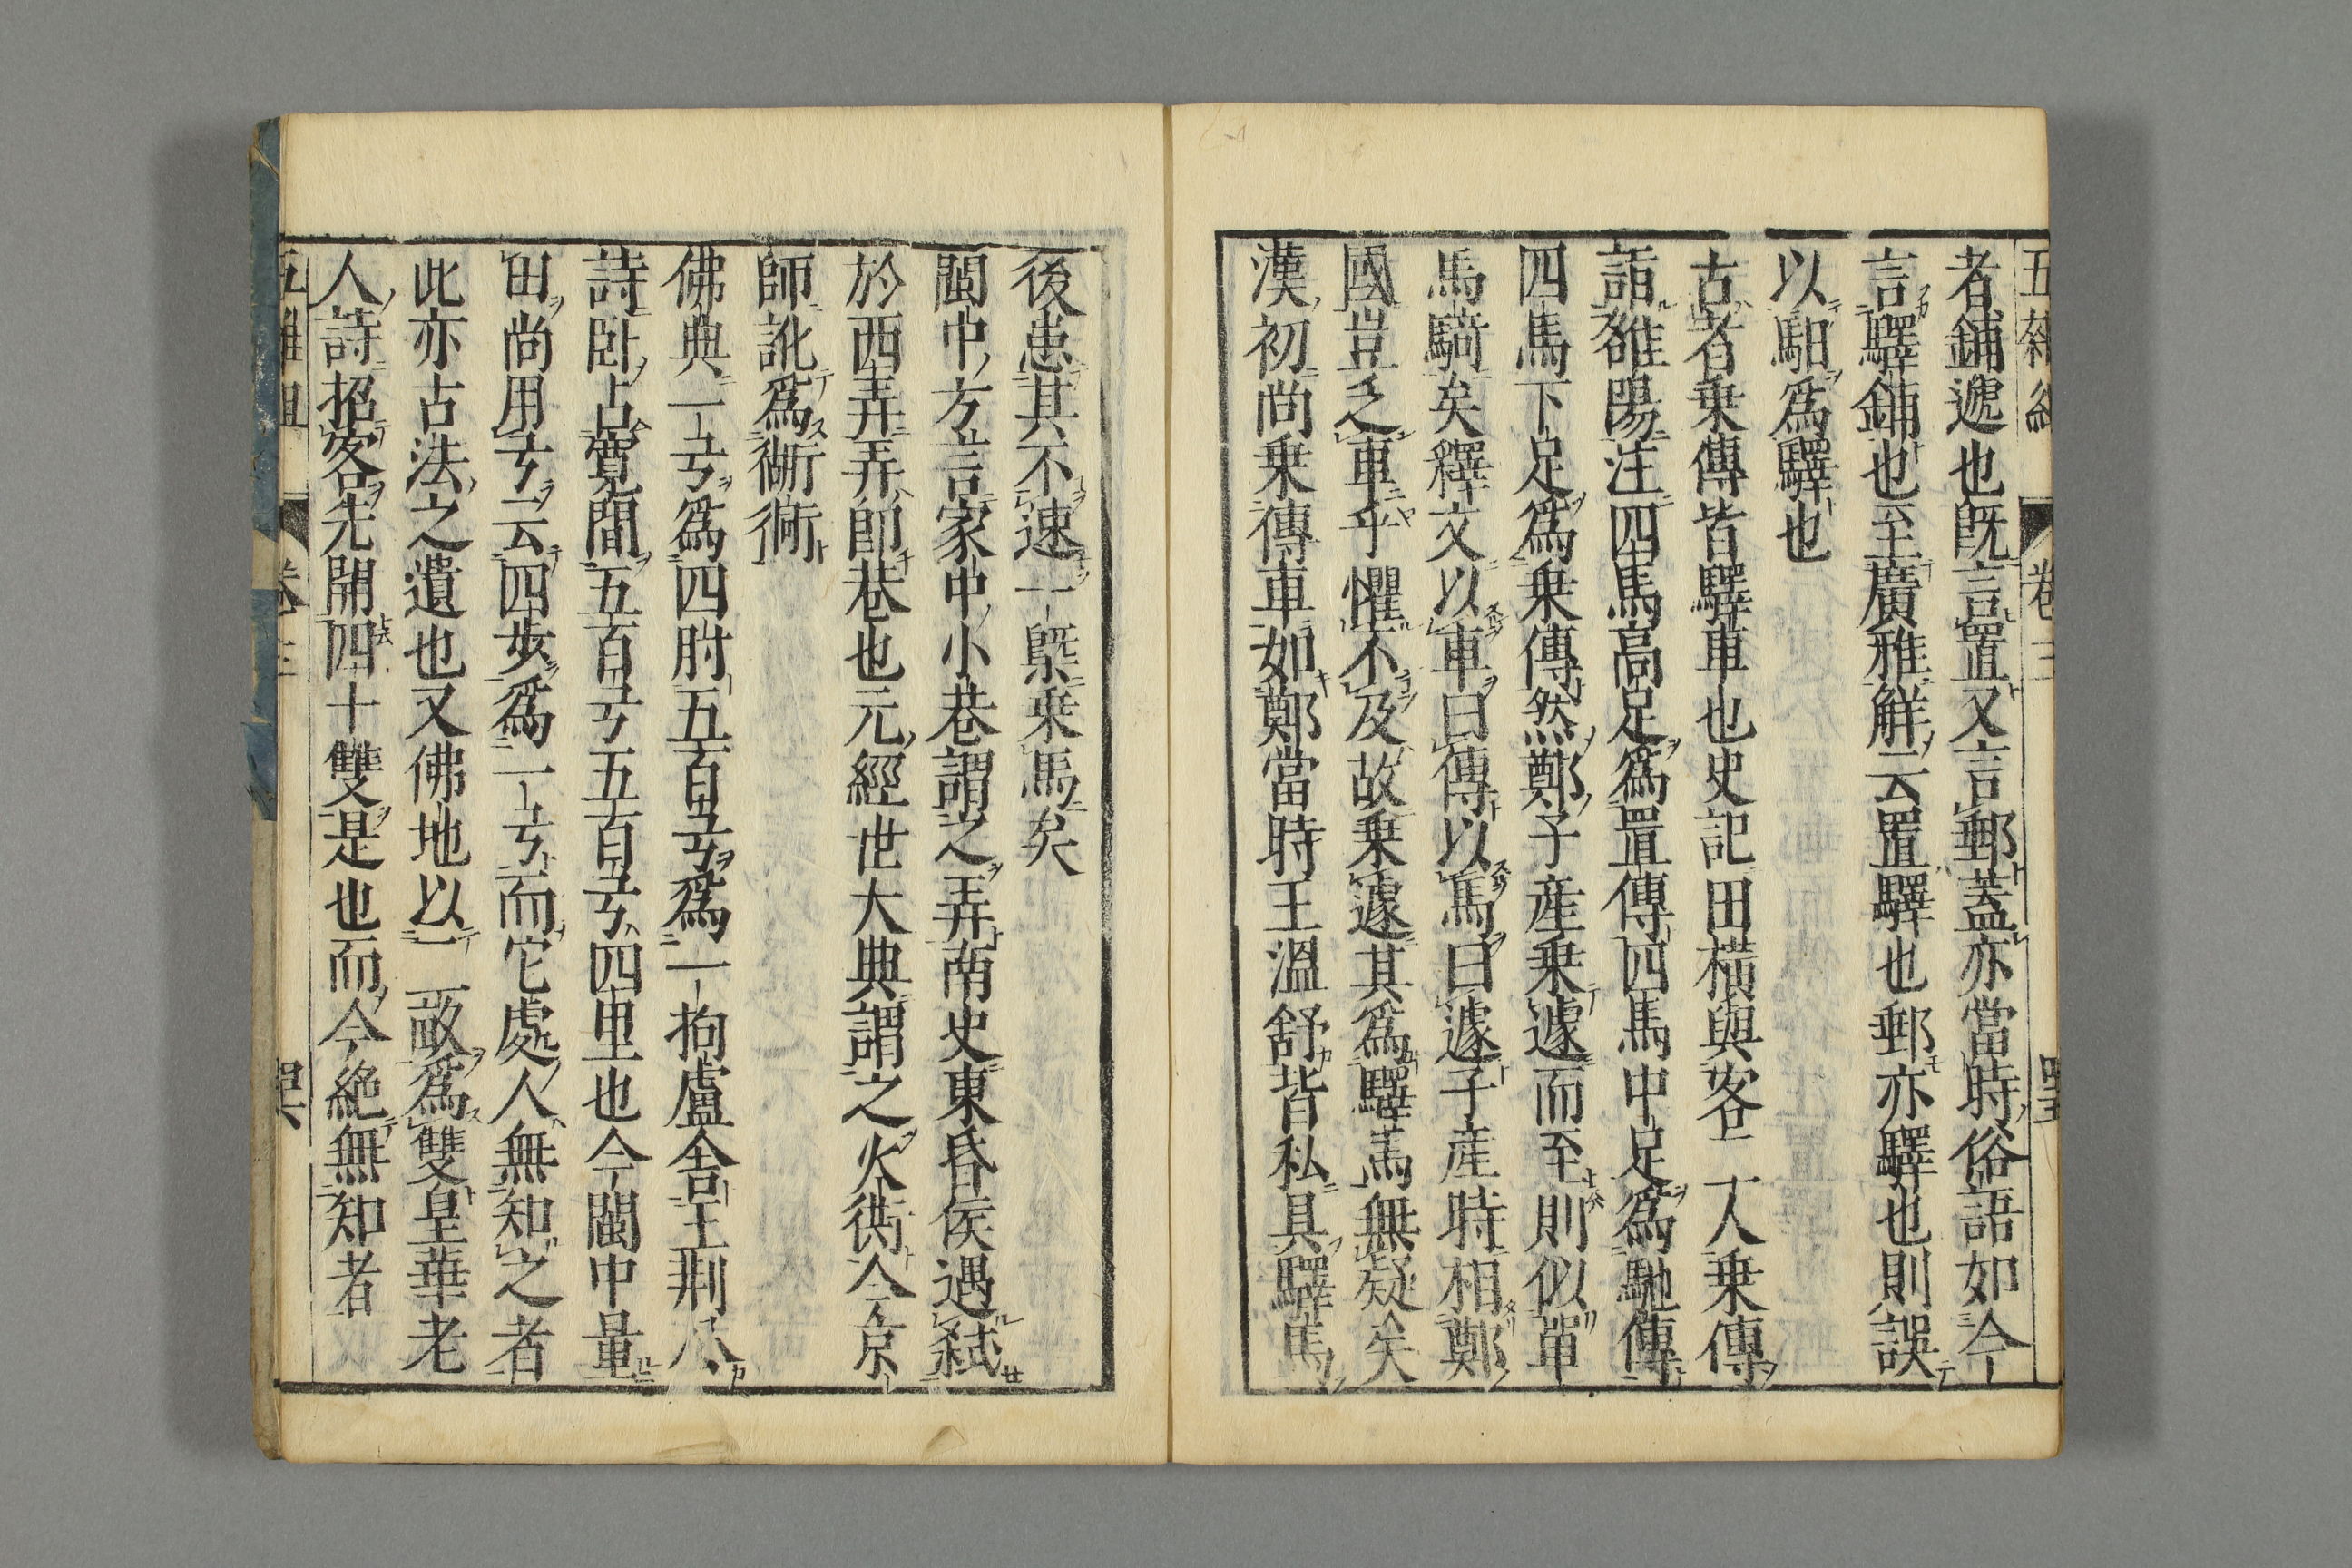 五雜組 卷三
者鋪遞也既言置又言郵蓋亦當時俗語如今
言驛鋪也至廣雅解云置驛也郵亦驛也則誤
以馹爲驛也
古者乗傳皆驛車也史記田橫與客二人乗傳
詣雒陽注四馬高足爲置傳四馬中足爲馳傳
四馬下足爲乗傳然鄭子産乗遽而至則似單
馬騎矣釋文以車曰傳以馬曰遽子産時相鄭
國豈乏車乎懼不及故乗遽其爲驛馬無疑矣
漢初尚乗傳車如鄭當時王溫舒皆私具驛馬
後患其不速一槩乗馬矣
閩中方言家中小巷謂之弄南史東昏侯遇弑
於西弄弄卽巷也元經世大典謂之火衖今京
師訛爲衚衕
佛典一弓爲四肘五百弓爲一拘盧舍王荆公
詩臥占寬閒五百弓五百弓四里也今閩中量
田尚用弓云四歩爲一弓而它處人無知之者
此亦古法之遺也又佛地以二畝爲雙皇華老
人詩招客先開四十雙是也而今絶無知者
五雜組 卷三